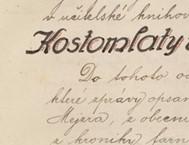 v učitelské knihov
Kostomlaty
Do tohoto od
které zprávy opsa
Meyera, z obecní
z kroniky farn